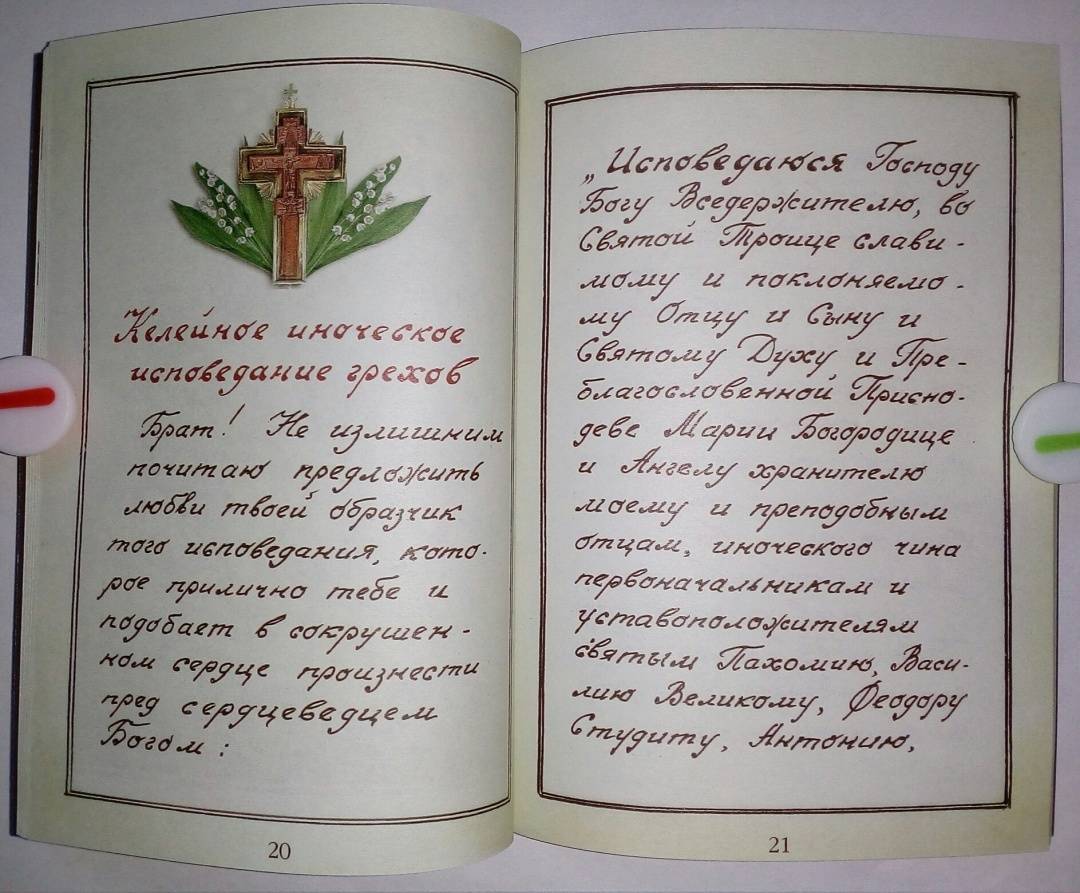 Келейное иноческое
исповедание грехов
Брат! Не излишним
почитаю предложить
любви твоей образчик
того исповедания, кото-
рое прилично тебе и
подобает в сокрушен-
ном сердце произнести
пред сердцеведцем
Богом:
20
„Исповедаюся Господу
Богу Вседержителю, во
Святой Троице слави-
мому и поклоняемо-
му Отцу и Сыну и
Святому Духу, и Пре-
благословенной Присно-
деве Марии Богородице
и Ангелу хранителю
моему и преподобным
отцам, иноческого чина
первоначальникам и
уставоположителям
святым Пахомию, Васи-
лию Великому, Феодору
Студиту, Антонию,
21